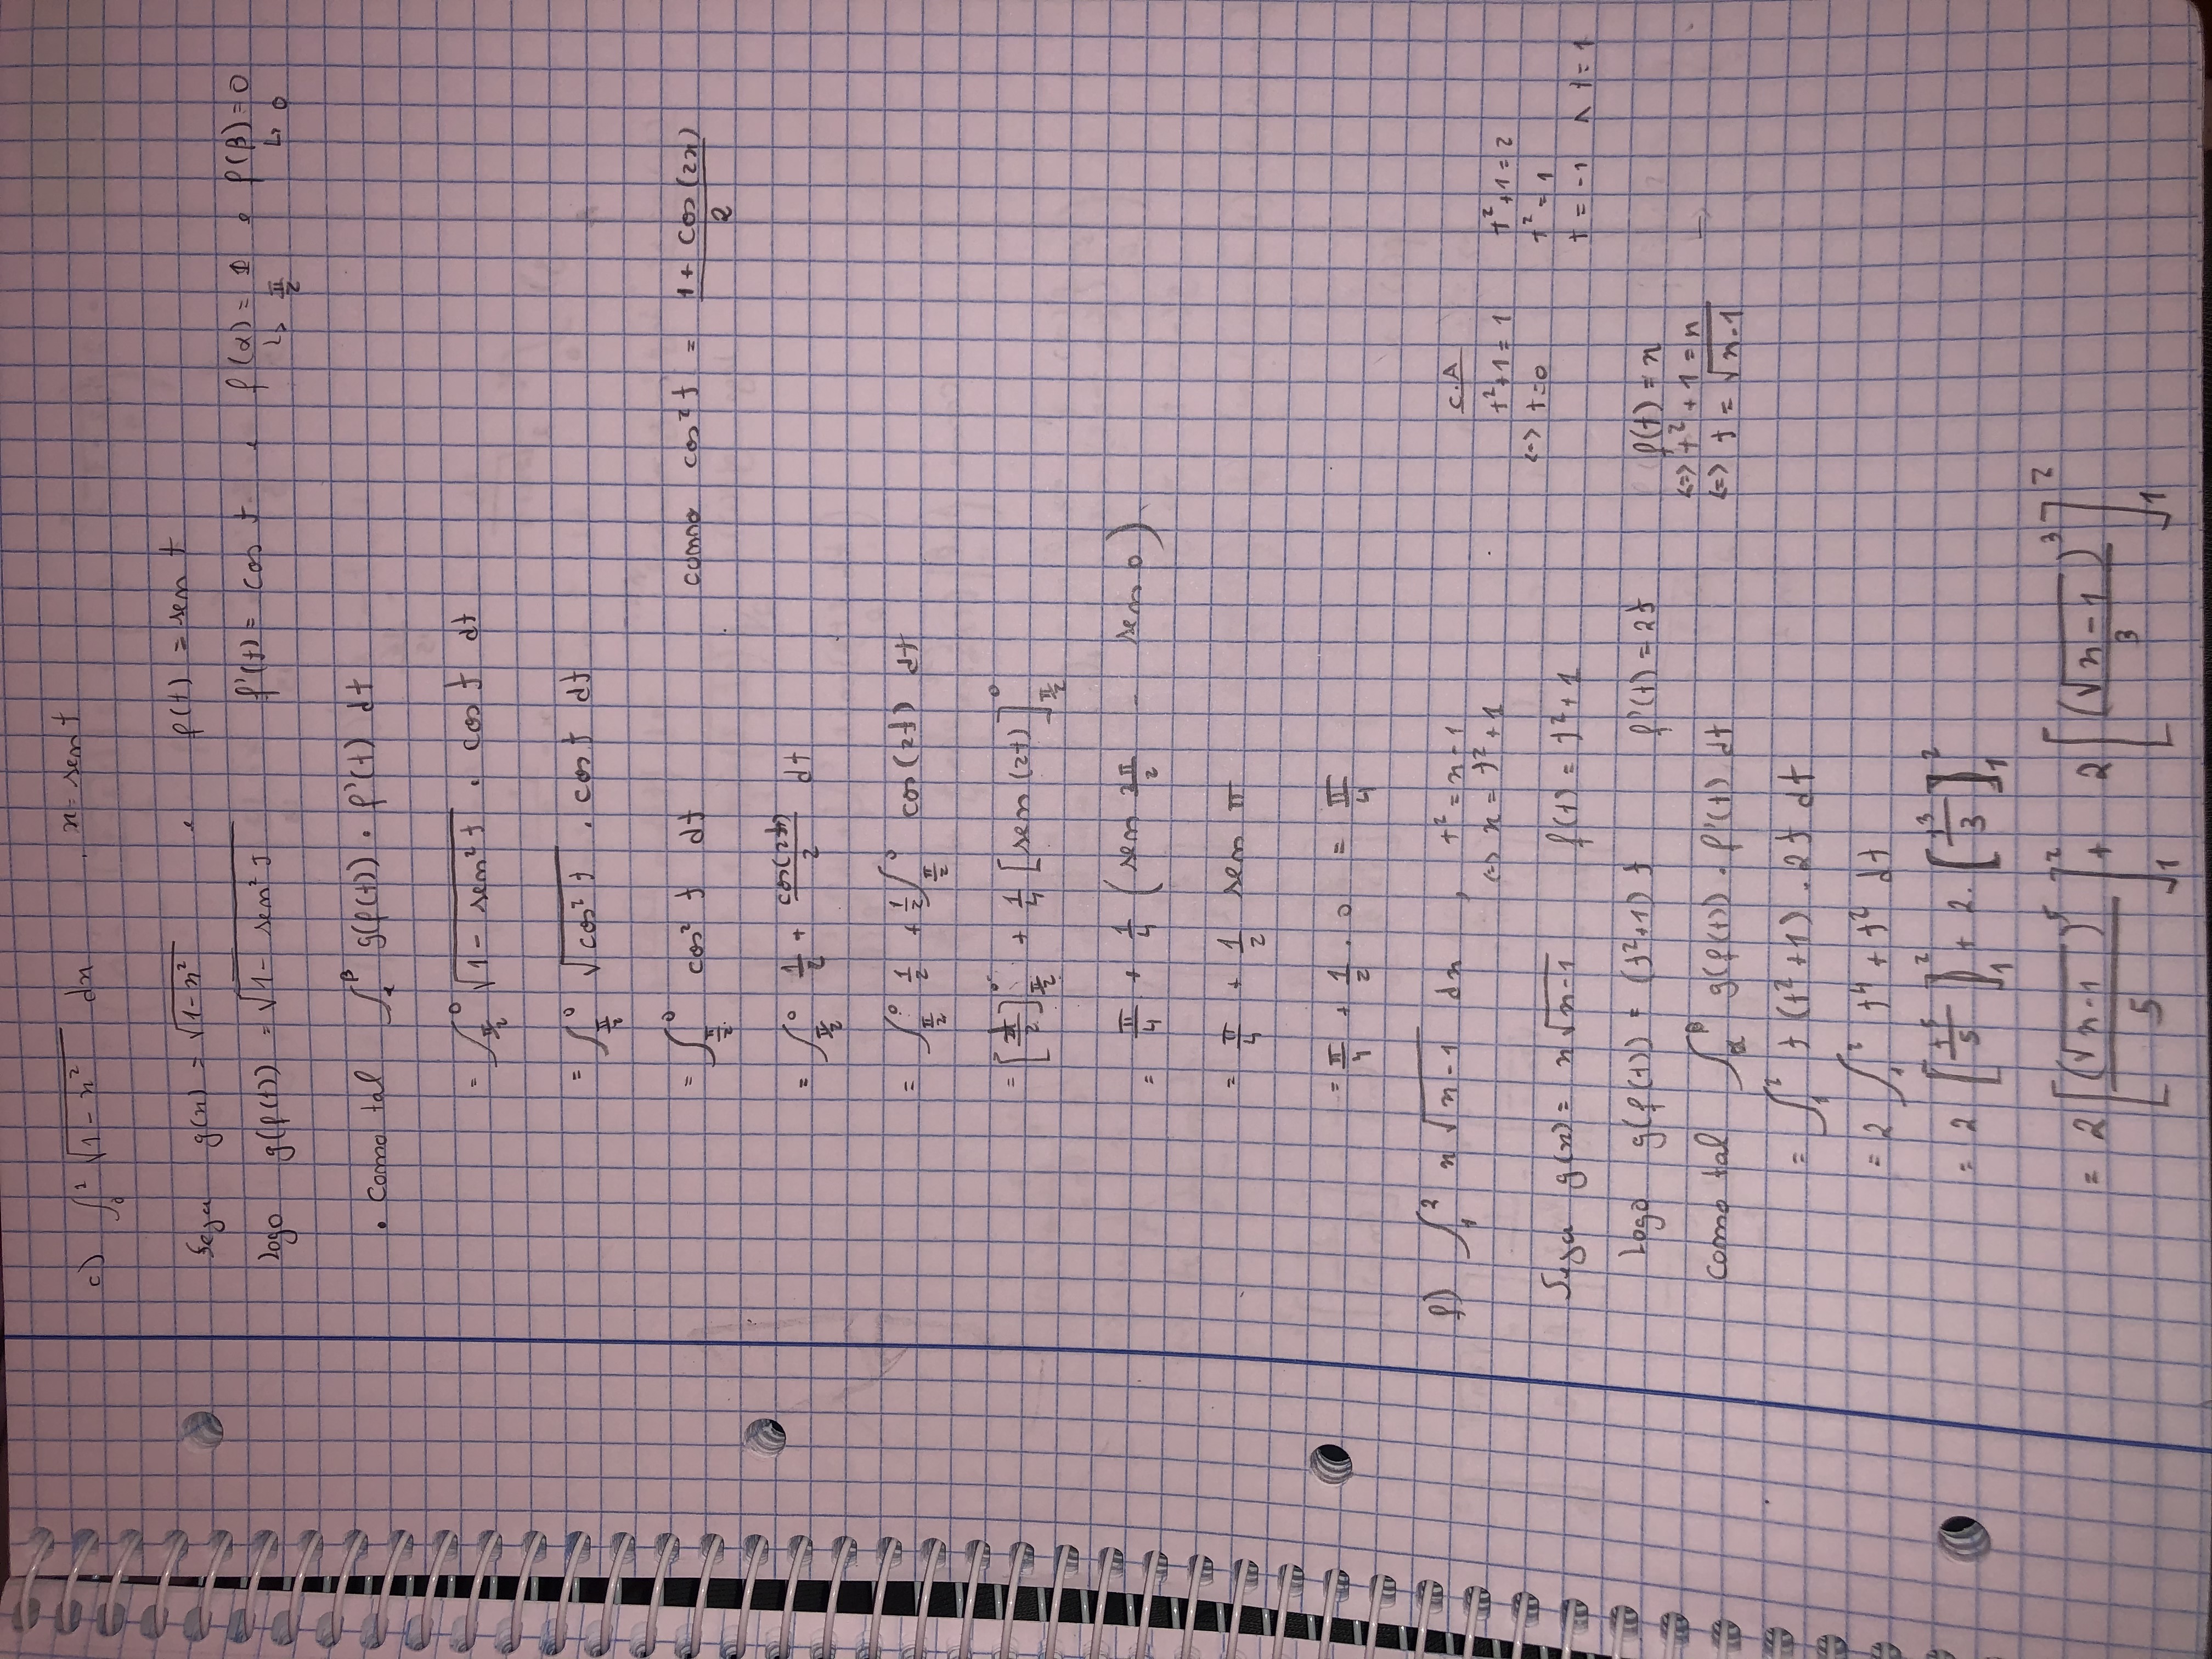 c) ∫₀¹ √(1-x²) dx , x = sen t
Seja g(x) = √(1-x²) , f(t) = sen t
logo g(f(t)) = √(1- sen² t) f'(t) = cos t , f(α) = 1 e f(β) = 0
↳ π/2 ↳ 0
• Como tal ∫_α^β g(f(t)) . f'(t) dt
= ∫_{π/2}^0 √(1 - sen² t) . cos t dt
= ∫_{π/2}^0 √(cos² t) . cos t dt
= ∫_{π/2}^0 cos² t dt como cos² t = (1 + cos(2x))/2
= ∫_{π/2}^0 1/2 + cos(2t)/2 dt
= ∫_{π/2}^0 1/2 + 1/2 ∫_{π/2}^0 cos(2t) dt
= [t/2]_{π/2}^0 + 1/4 [sen(2t)]_{π/2}^0
= π/4 + 1/4 (sen 2π/2 - sen 0)
= π/4 + 1/2 sen π
= π/4 + 1/2 . 0 = π/4
f) ∫₁² x √(x-1) dx , t² = x-1
<=> x = t²+1
C.A
t²+1 = 1 t²+1 = 2
<=> t=0 t² = 1
t = -1 ∧ t = 1
Seja g(x) = x√(x-1) f(t) = t²+1
Logo g(f(t)) = (t²+1) t f'(t) = 2t
f(t) = x
<=> t² + 1 = x
<=> t = √(x-1)
Como tal ∫_α^β g(f(t)) . f'(t) dt
= ∫₁² t (t²+1) . 2t dt
= 2 ∫₁² t⁴ + t² dt
= 2 [t⁵/5]₁² + 2. [t³/3]₁²
= 2 [(√(x-1))⁵/5]₁² + 2 [(√(x-1))³/3]₁²